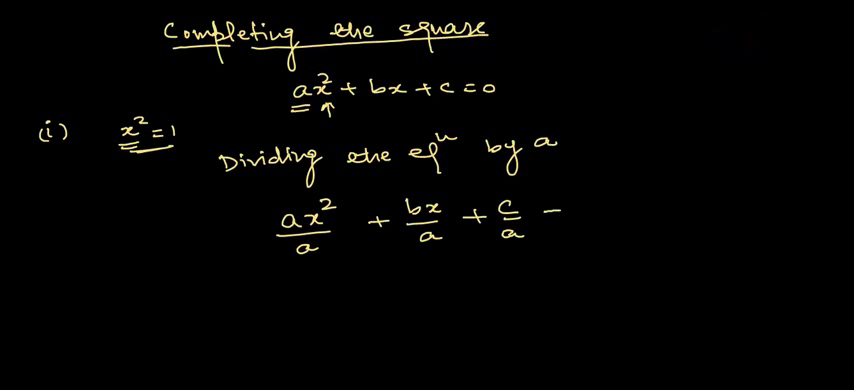 Completing the square
ax² + bx + c = 0
(i) x² = 1
Dividing the eqⁿ by a
ax²/a + bx/a + c/a -